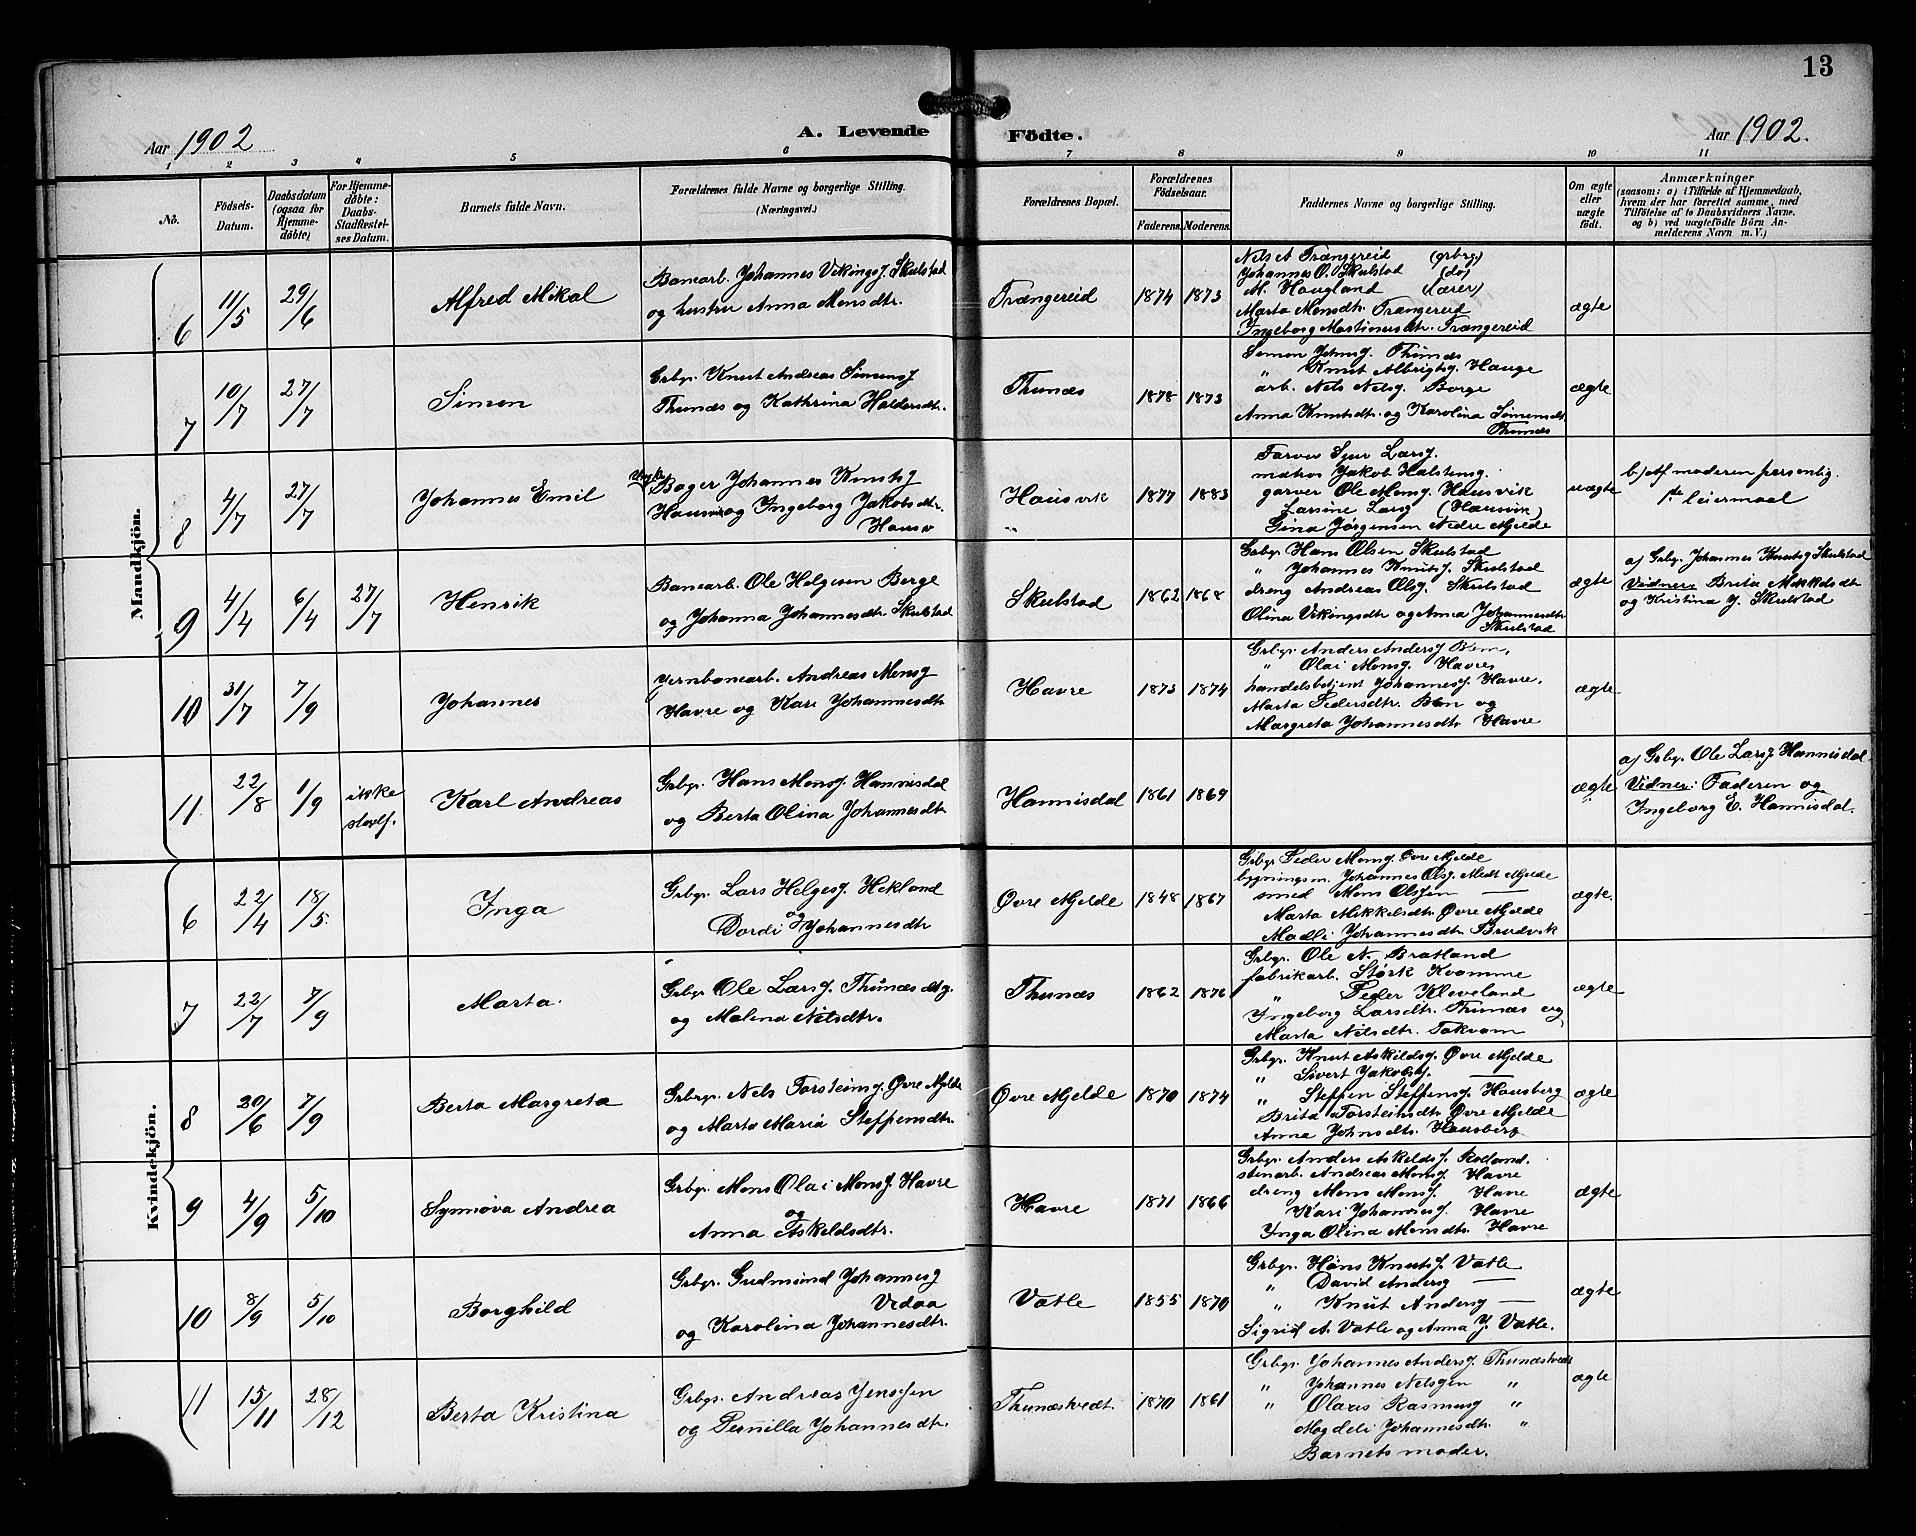 13
Aar 1902
A. Levende Födte.
Aar 1902.
1 2 3 4 5 6 7 8 9 10 11
No.
Födsels-Datum.
Daabsdatum (ogsaa for Hjemmedöbte)
For Hjemmedöbte: Daabs-Stadfæstelses Datum.
Barnets fulde Navn.
Forældrenes fulde Navne og borgerlige Stilling.
(Næringsvei.)
Forældrenes Bopæl.
Forældrenes Födselsaar.
Faderens. Moderens.
Faddernes Navne og borgerlige Stilling.
Om ægte eller uægte födt.
Anmærkninger
(saasom: a) i Tilfælde af Hjemmedaab,
hvem der har forrettet samme, med
Tilföielse af to Daabsvidners Navne,
og b) ved uægtefödte Börn Anmelderens Navn m. V.)
Mandkjön.
6 11/5 29/6 Alfred Mikal
Banearb. Johannes Vikingsg. Skulstad
og hustru Anna Monsdtr.
Trængereid 1874 1873
Nils A Trængereid (grbrg)
Johannes O. Skulstad (do)
M. Haugland (lærer)
Marta Monsdtr. Trængereid
Ingeborg Martinusdtr. Trængereid
ægte
7 10/7 27/7 Simon
Grbgr. Knut Andreas Simonsg
Thunæs og Kathrina Haldorsdtr.
Thunæs 1878 1873
Simon Johnsg. Thunæs
" Knut Albrigtsg. Hauge
arb. Nels Nelsg. Borge
Anna Knutsdtr. og Karolina Simonsdt.
Thunæs
ægte
8 4/7 27/7 Johannes Emil
Ungkr. Bager Johannes Knutsg
Hausvik og Ingeborg Jakobsdtr.
Hausv
Hausvik 1877 1883
"
Farver Sjur Larsg.
matros Jakob Halstensg.
garver Ole Monsg. Hausvik
Larsine Larsg (Hausvik)
Gina Jørgensen Nedre Mjelde
uægte
b) Af moderen personlig.
1ste leiermaal
9 4/4 6/4 27/7 Henrik
Banearb. Ole Helgesen Berge
og Johanna Johannesdtr. Skulstad
Skulstad 1862 1868
Grbgr. Hans Olsen Skulstad
" Johannes Knutsg. Skulstad
dreng Andreas Olsg. Skulstad
Olina Vikingsdtr og Anna Johannesdtr.
Skulstad
ægte
af Grbgr. Johannes Knutsg Skulstad
Vidner: Brita Mikkelsdtr
og Kristina J. Skulstad
10 31/7 7/9 Johannes
Jernbanearb. Andreas Monsg
Havre og Kari Johannesdtr
Havre 1873 1874
Grbgr. Anders Andersg Bøn,
" Olai Monsg. Havre,
handelsbetjent Johannesg. Havre,
Marta Pedersdtr. Bøn og
Margreta Johannesdtr. Havre
ægte
11 22/8 1/9 ikke stadf. Karl Andreas
Grbgr. Hans Monsg. Hannisdal
og Berta Olina Johannesdtr
Hannisdal 1861 1869
ægte
af Grbgr. Ole Larsg Hannisdal
Vidner: Faderen og
Ingeborg E. Hannisdal.
Kvindekjön.
6 22/4 18/5 Inga
Grbgr. Lars Helgesg. Hekland
og
Dordi Johannesdtr
Øvre Mjelde 1848 1867
Grbgr. Peder Monsg. Øvre Mjelde
bygningsm. Johannes Olsg. Medt Mjelde
smed Mons Olsgen —
Marta Mikkelsdtr. Øvre Mjelde
Madli Johannesdtr. Brudvik
ægte.
7 22/7 7/9 Marta.
Grbgr. Ole Larsg. Thunæs
og Malena Nilsdtr.
Thunæs 1862 1876
Grbgr. Ole N. Bratland
fabrikarb. Størk Kvamme
" Peder Kleveland
Ingeborg Larsdtr. Thunæs og
Marta Nilsdtr. Takvam
ægte
8 20/6 7/9 Berta Margreta
Grbrgr. Nels Torsteinsg. Øvre Mjelde
og Marta Maria Steffensdtr.
Øvre Mjelde 1870 1874
Grbgr. Knut Askildsg. Øvre Mjelde
" Sivert Jakobsg. —
" Steffen Steffensg. Hausberg
Brita Torsteinsdtr. Øvre Mjelde
Anna Johnsdtr. Hausberg
ægte
9 4/9 5/10 Synnøva Andrea
Grbgr. Mons Olai Monsg. Havre
og
Anna Askildsdtr.
Havre 1871 1866
Grbgr. Anders Askeldsg. Rolland.
stenarb. Andreas Monsg. Havre
dreng Mons Monsg. Havre
Kari Johannesg. Havre
Inga Olina Monsdtr. Havre
ægte
10 8/9 5/10 Borghild
Grbgr. Gudmund Johannesg
Vedaa
og Karolina Johannesdtr.
Vatle 1855 1870
Grbgr. Hans Knutsg. Vatle
" David Andersg —
" Knut Andersg —
Sigrid A. Vatle og Anna J. Vatle.
ægte
11 15/11 28/12 Berta Kristina
Grbgr. Andreas Jensgen
og Pernilla Johannesdtr.
Thunæstvedt. 1870 1861
Grbgr. Johannes Andersg. Thunæstvedt
" Johannes Nelsgen "
" Olaus Rasmusg "
Magdeli Johannesdtr. "
Barnets moder.
ægte